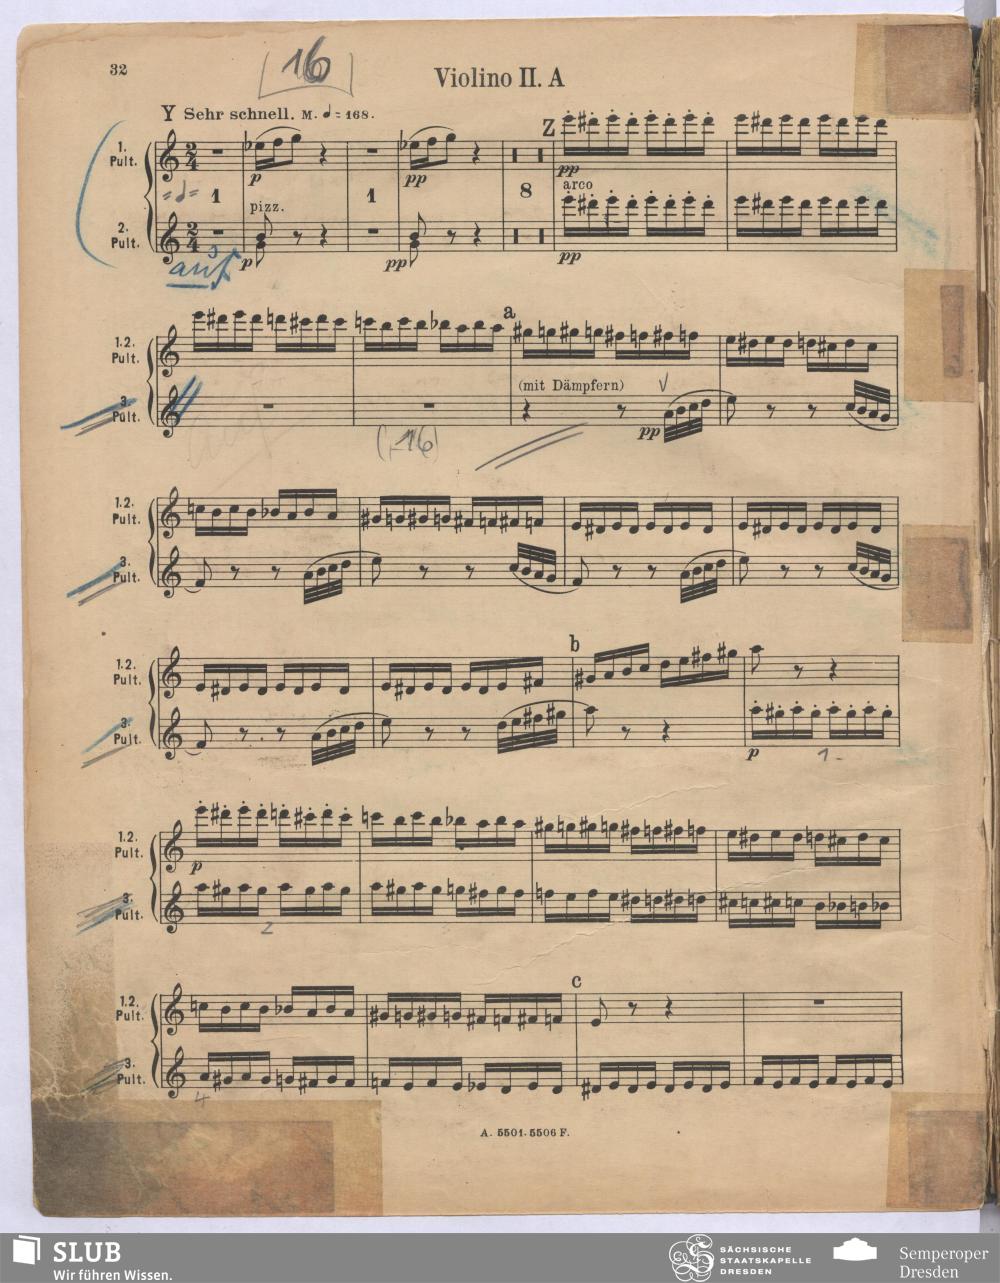 16
32
Violino II. A
Y Sehr schnell. M. = 168.
Z
1.
Pult.
p
pp
pp
1
1
8
pizz.
arco
2.
Pult.
p
pp
pp
auf
a
1.2.
Pult.
(mit Dämpfern)
3.
Pult.
pp
(-16)
1.2.
Pult.
3.
Pult.
b
1.2.
Pult.
3.
Pult.
p
1-
1.2.
Pult.
p
3.
Pult.
2
c
1.2.
Pult.
3.
Pult.
4
A. 5501-5506 F.
SLUB
Wir führen Wissen.
SÄCHSISCHE
STAATSKAPELLE
DRESDEN
Semperoper
Dresden